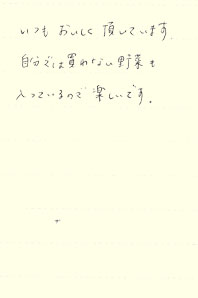 いつも おいしく 頂いています。
自分では買わない野菜も
入っているので 楽しいです。